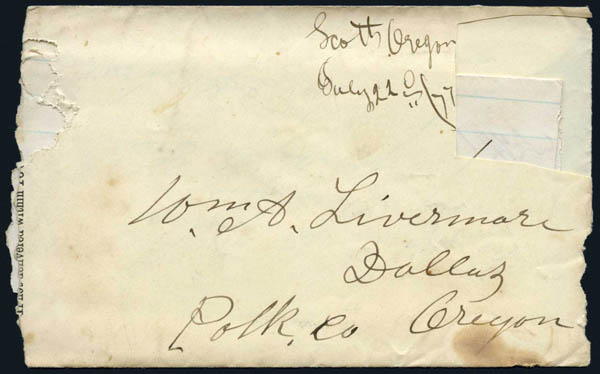 Scott Oregon
July 22
Wm A. Livermore
Dallas
Polk. Co Oregon
If not delivered within 10